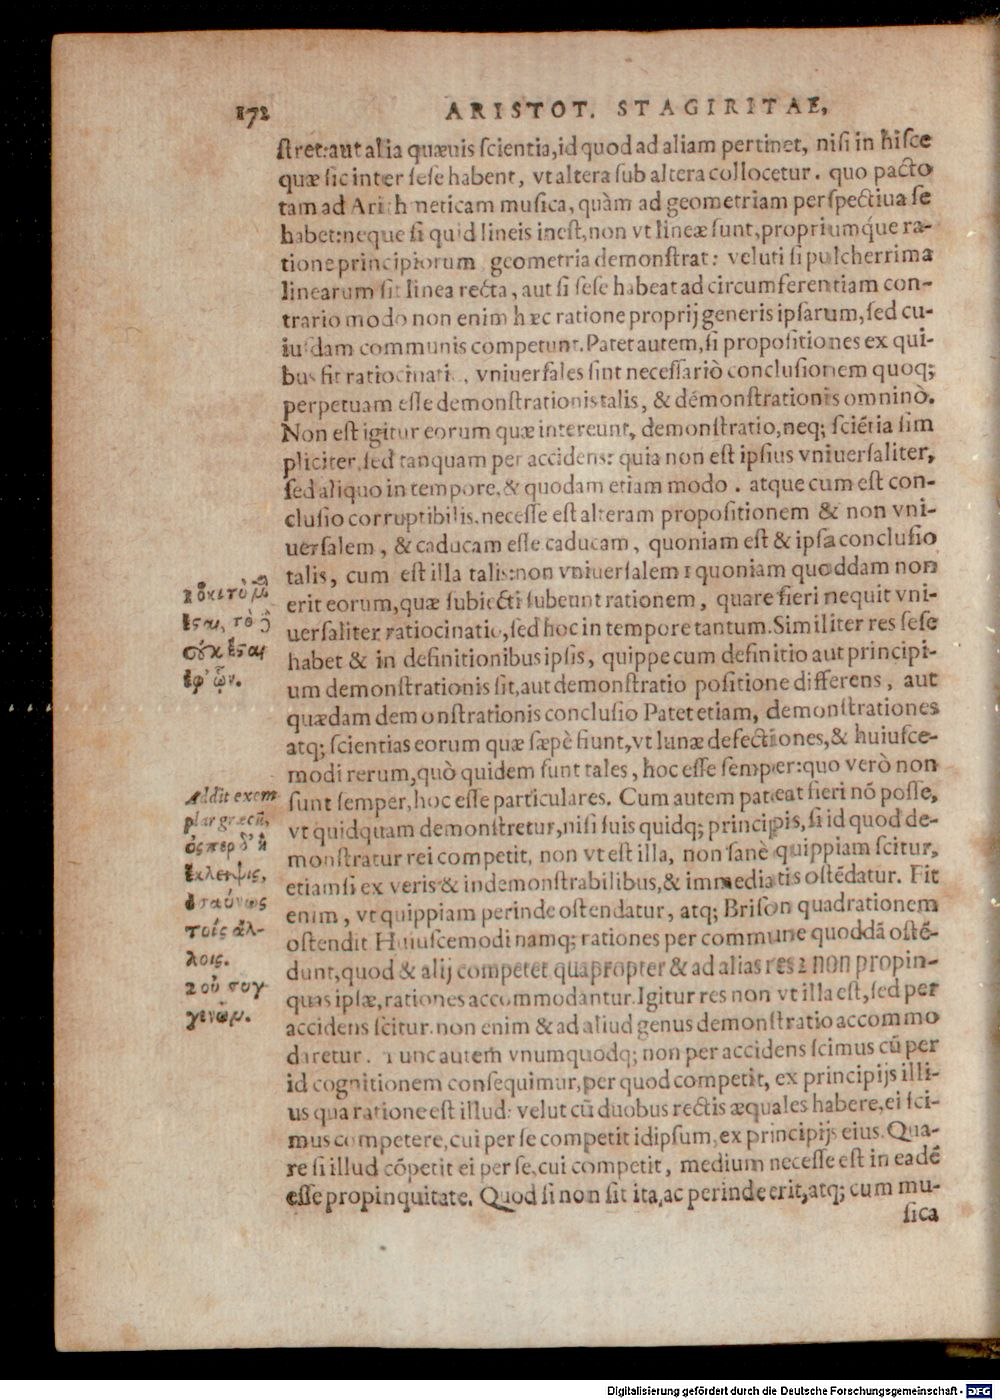 172 ARISTOT. STAGIRITAE,
ſtret: aut alia quæuis ſcientia, id quod ad aliam pertinet, niſi in hiſce
quæ ſic inter ſeſe habent, vt altera ſub altera collocetur. quo pacto
tam ad Arithmeticam muſica, quàm ad geometriam perſpectiua ſe
habet: neque ſi quid lineis ineſt, non vt lineæ ſunt, propriumq́ue ra-
tione principiorum geometria demonſtrat: veluti ſi pulcherrima
linearum ſit linea recta, aut ſi ſeſe habeat ad circumferentiam con-
trario modo non enim hæc ratione proprij generis ipſarum, ſed cu-
iuſdam communis competunt. Patet autem, ſi propoſitiones ex qui-
bus fit ratiocinati , vniuerſales ſint neceſſariò concluſionem quoq;
perpetuam eſſe demonſtrationis talis, & démonſtrationis omninò.
Non eſt igitur eorum quæ intereunt, demonſtratio, neq; ſciẽtia ſim
pliciter, ſed tanquam per accidens: quia non eſt ipſius vniuerſaliter,
ſed aliquo in tempore, & quodam etiam modo. atque cum eſt con-
cluſio corruptibilis, neceſſe eſt alteram propoſitionem & non vni-
uerſalem, & caducam eſſe caducam, quoniam eſt & ipſa concluſio
talis, cum eſt illa talis: non vniuerſalem 1 quoniam quoddam non
erit eorum, quæ ſubiecti ſubeunt rationem, quare fieri nequit vni-
uerſaliter ratiocinatio, ſed hoc in tempore tantum. Similiter res ſeſe
habet & in definitionibus ipſis, quippe cum definitio aut principi-
um demonſtrationis ſit, aut demonſtratio poſitione differens, aut
quædam demonſtrationis concluſio Patet etiam, demonſtrationes
atq; ſcientias eorum quæ ſæpè fiunt, vt lunæ defectiones, & huiuſce-
modi rerum, quò quidem ſunt tales, hoc eſſe ſemper: quo verò non
ſunt ſemper, hoc eſſe particulares. Cum autem pateat fieri nõ poſſe,
vt quidquam demonſtretur, niſi ſuis quidq; principijs, ſi id quod de-
monſtratur rei competit, non vt eſt illa, non ſanè quippiam ſcitur,
etiamſi ex veris & indemonſtrabilibus, & immediatis oſtẽdatur. Fit
enim, vt quippiam perinde oſtendatur, atq; Briſon quadrationem
oſtendit Huiuſcemodi namq; rationes per commune quoddã oſtẽ-
dunt, quod & alij competet quapropter & ad alias res 2 non propin-
quas ipſæ, rationes accommodantur. Igitur res non vt illa eſt, ſed per
accidens ſcitur. non enim & ad aliud genus demonſtratio accommo
daretur. Tunc autem vnumquodq; non per accidens ſcimus cũ per
id cognitionem conſequimur, per quod competit, ex principijs illi-
us qua ratione eſt illud: velut cũ duobus rectis æquales habere, ei ſci-
mus competere, cui per ſe competit idipſum, ex principijs eius. Qua-
re ſi illud cõpetit ei per ſe, cui competit, medium neceſſe eſt in eadẽ
eſſe propinquitate. Quod ſi non ſit ita, ac perinde erit, atq; cum mu-
ſica
ἔςαι, τὸ
οὐκ ἔςαι
ἐφ' ὧν.
Addit exem
plar græcũ,
ὥςπερ δ' ἡ
ἔκλειψις,
ὡσαύτως
τοῖς ἄλ-
λοις.
2 οὐ συγ
γενῶν.
Digitalisierung gefördert durch die Deutsche Forschungsgemeinschaft - DFG